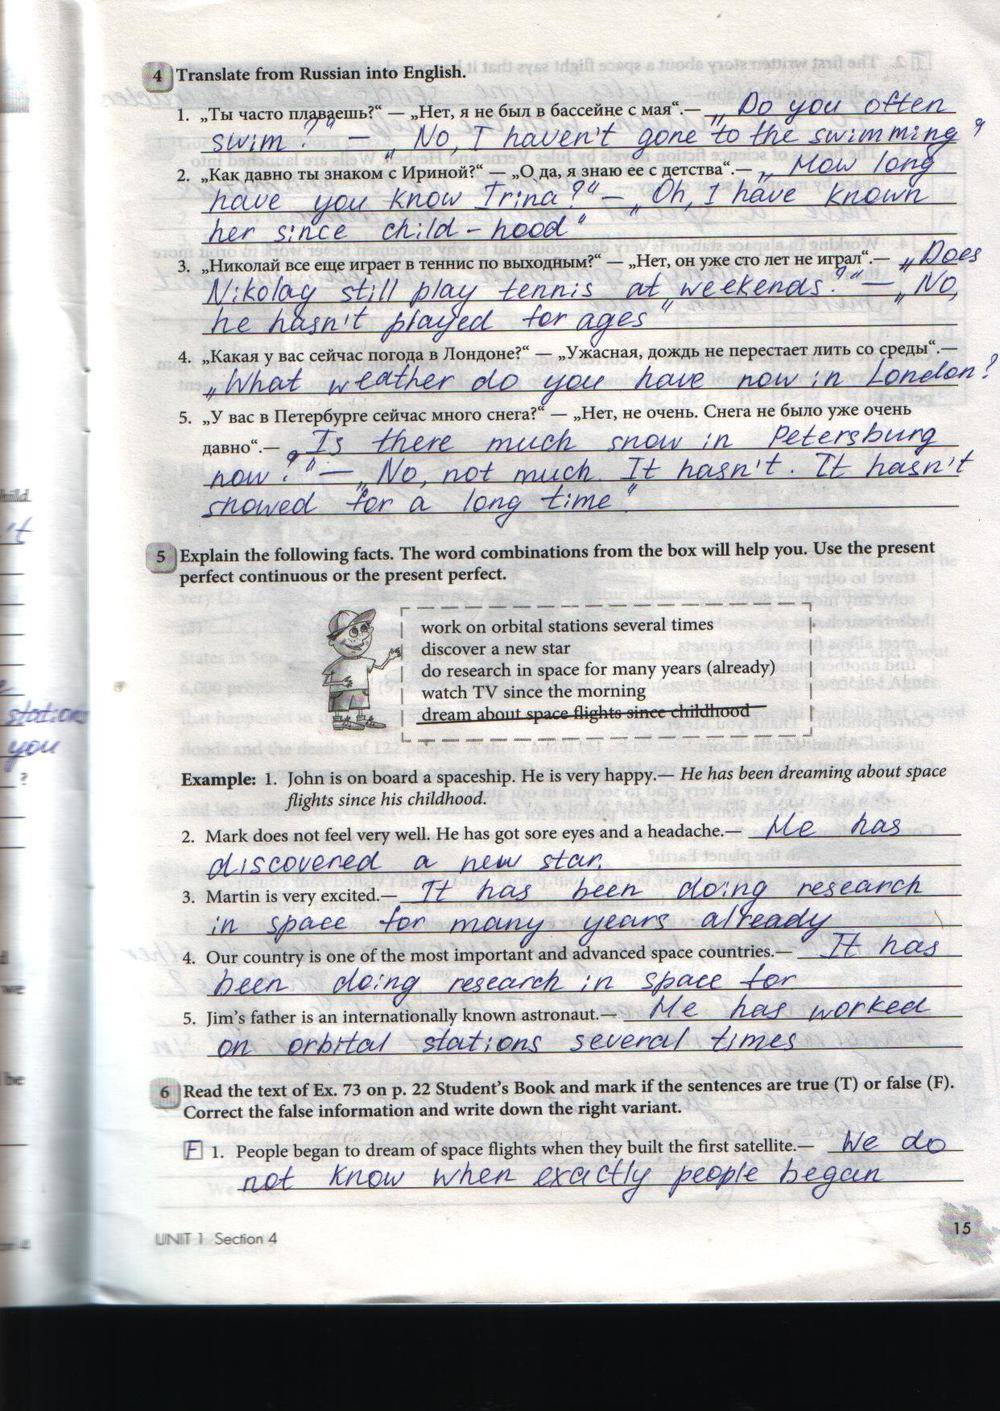 4 Translate from Russian into English.
1. „Ты часто плаваешь?“ — „Нет, я не был в бассейне с мая“.— „Do you often
swim?“ — „No, I haven't gone to the swimming
2. „Как давно ты знаком с Ириной?“ — „О да, я знаю ее с детства“.— „How long
have you know Irina?“ — „Oh, I have known
her since child-hood“
3. „Николай все еще играет в теннис по выходным?“ — „Нет, он уже сто лет не играл“.— „Does
Nikolay still play tennis at weekends?“ — „No,
he hasn't played for ages“
4. „Какая у вас сейчас погода в Лондоне?“ — „Ужасная, дождь не перестает лить со среды“.—
„What weather do you have now in London?
5. „У вас в Петербурге сейчас много снега?“ — „Нет, не очень. Снега не было уже очень
давно“.— „Is there much snow in Petersburg
now?“ — „No, not much. It hasn't. It hasn't
snowed for a long time“
5 Explain the following facts. The word combinations from the box will help you. Use the present
perfect continuous or the present perfect.
work on orbital stations several times
discover a new star
do research in space for many years (already)
watch TV since the morning
dream about space flights since childhood
Example: 1. John is on board a spaceship. He is very happy.— He has been dreaming about space
flights since his childhood.
2. Mark does not feel very well. He has got sore eyes and a headache.— He has
discovered a new star.
3. Martin is very excited.— It has been doing research
in space for many years already
4. Our country is one of the most important and advanced space countries.— It has
been doing research in space for
5. Jim's father is an internationally known astronaut.— He has worked
on orbital stations several times
6 Read the text of Ex. 73 on p. 22 Student's Book and mark if the sentences are true (T) or false (F).
Correct the false information and write down the right variant.
F 1. People began to dream of space flights when they built the first satellite.— We do
not know when exactly people began
UNIT 1 Section 4
15
stations
you